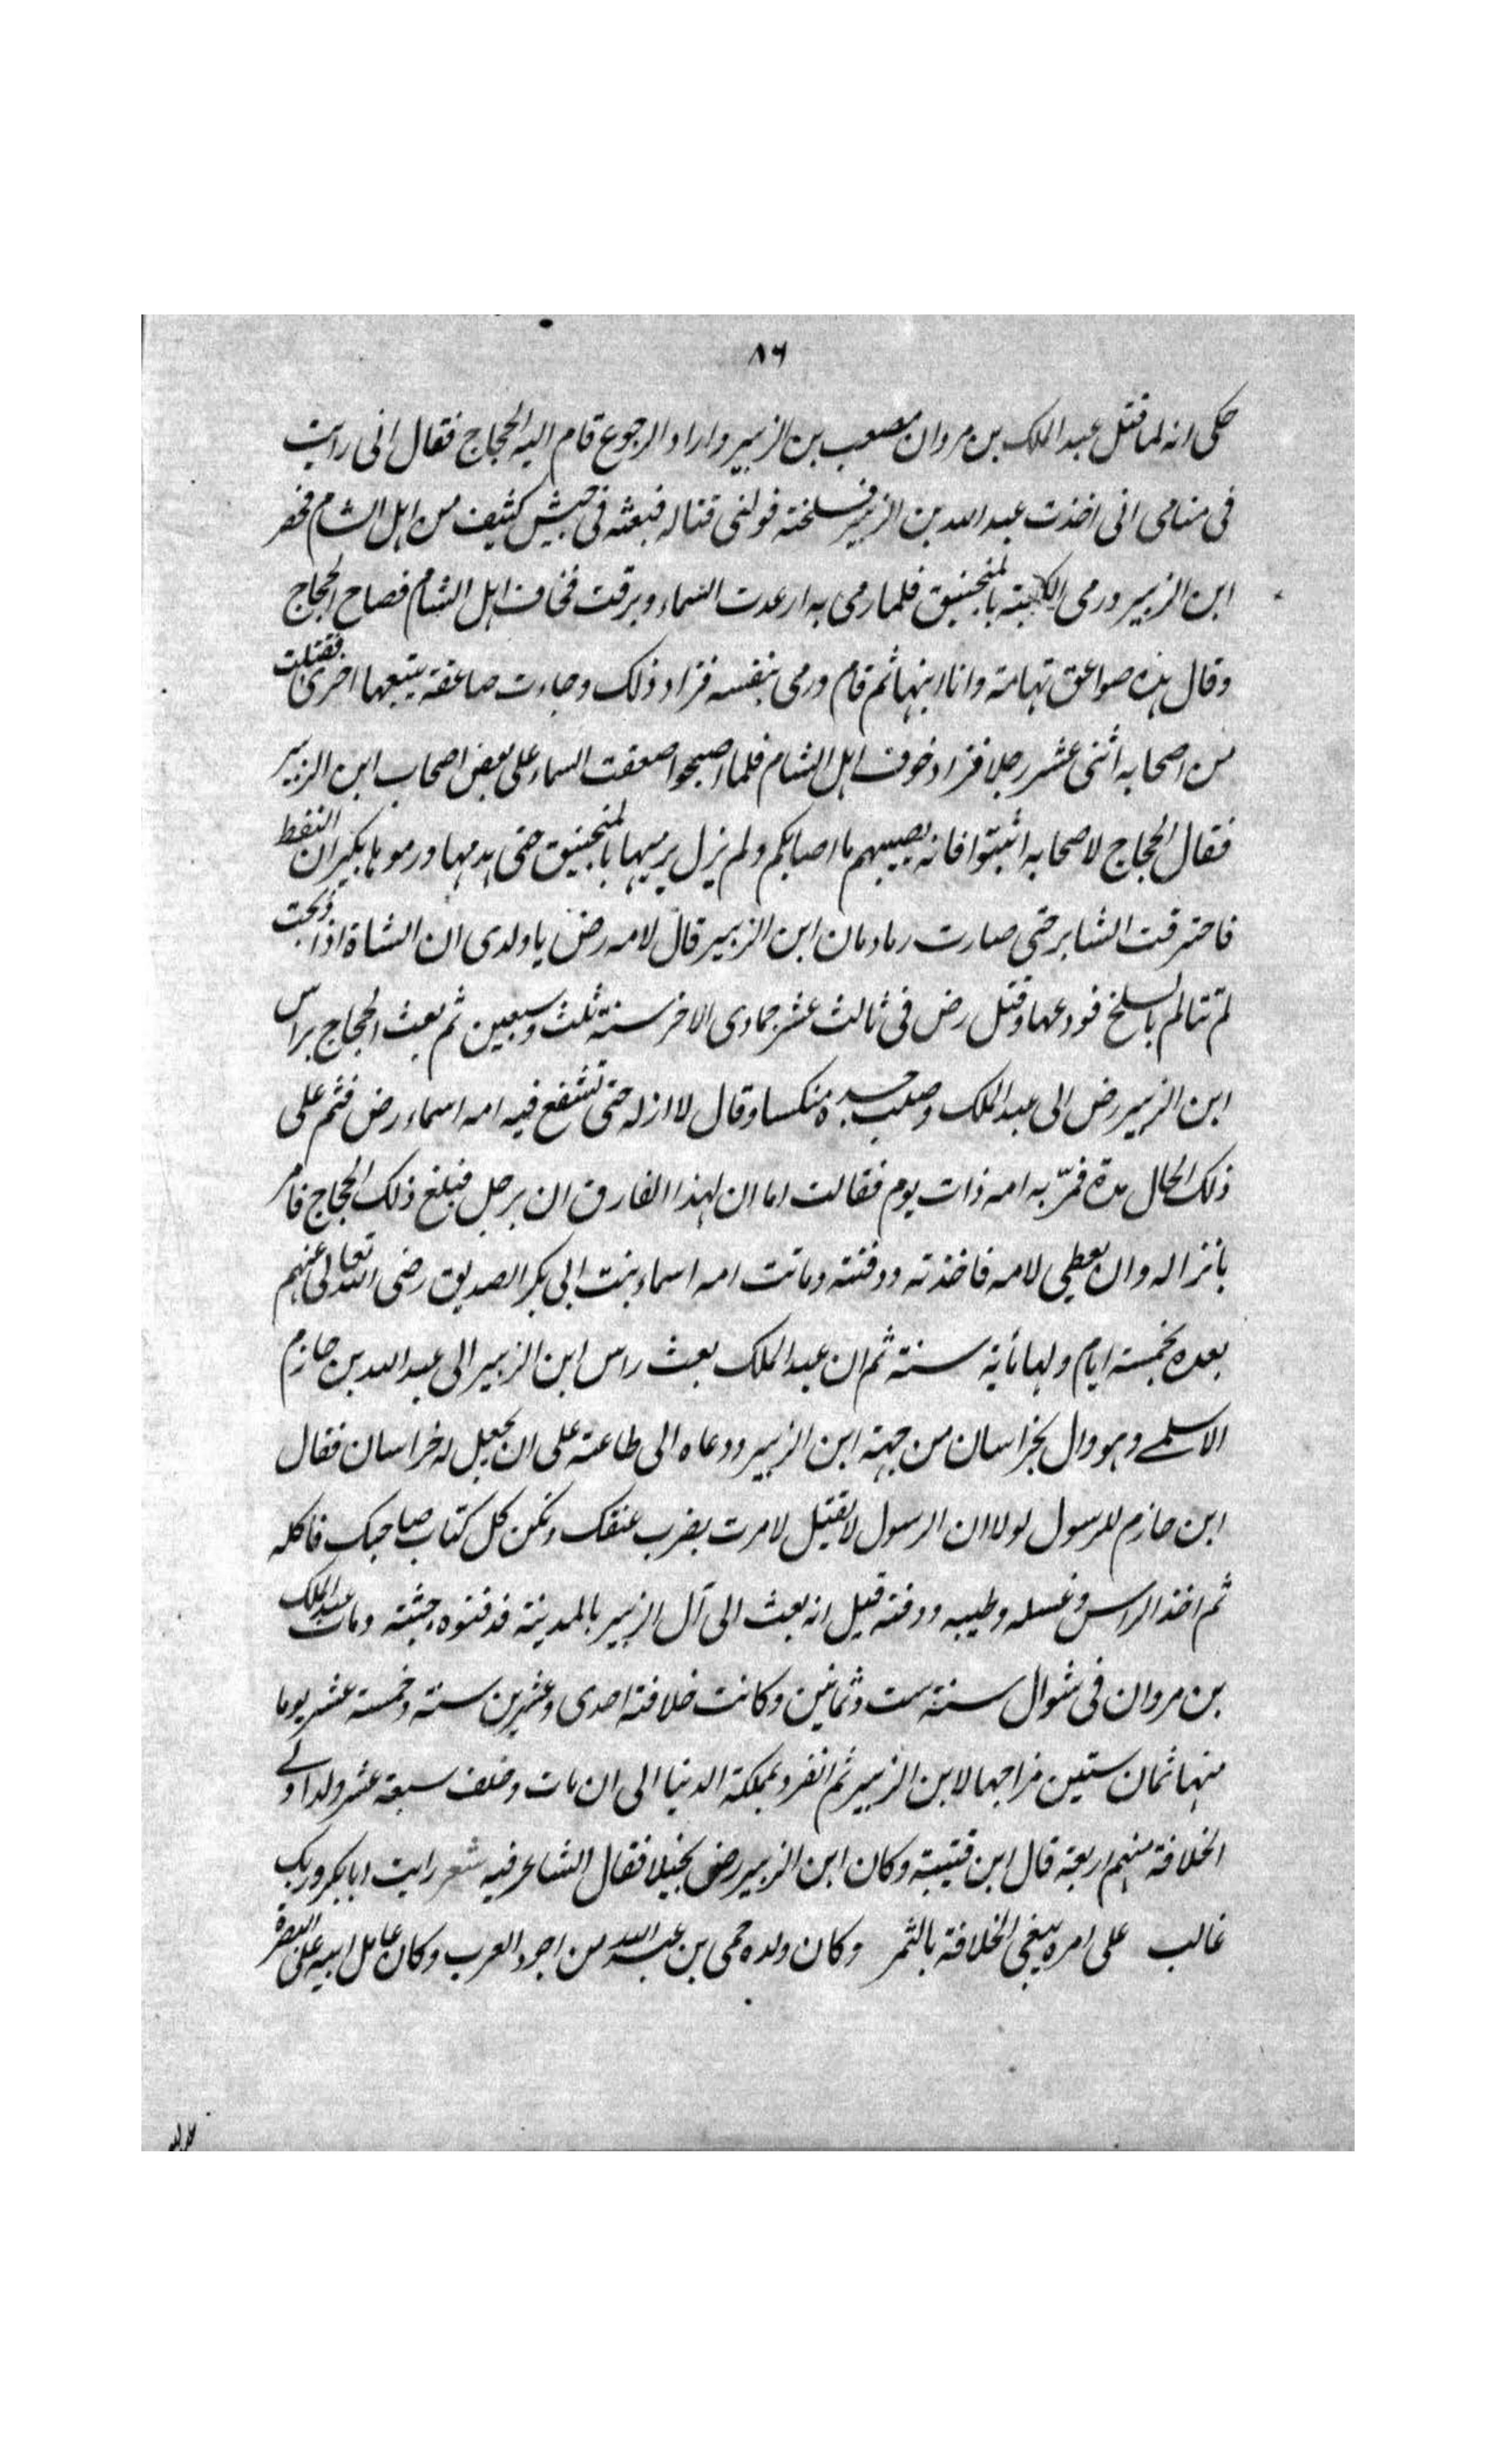 ٨٦
حكى انه لما قتل عبد الملك بن مروان مصعب بن الزبير واراد الرجوع قام اليه الحجاج فقال انى رايت
فى منامى انى اخذت عبد الله بن الزبير فسلخته فولنى قتاله فبعثه فى جيش كثيف من اهل الشام فحصر
ابن الزبير ورمى الكعبة بالمنجنيق فلما رمى به ارعدت السماء وبرقت فخاف اهل الشام فصاح الحجاج
وقال هذه صواعق تهامة وانا ابنها ثم قام ورمى بنفسه فزاد ذلك وجاءت صاعقة يتبعها اخرى فقتلت
من اصحابه اثنى عشر رجلا فزاد خوف اهل الشام فلما اصبحوا صعقت السماء على بعض اصحاب ابن الزبير
فقال الحجاج لاصحابه اثبتوا فانه يصيبهم ما اصابكم ولم يزل يرميها بالمنجنيق حتى هدمها ورموها بكيزان النفط
فاحترقت الستاير حتى صارت رمادا وان ابن الزبير قال لامه رض يا ولدى ان الشاة اذا ذبحت
لم تتالم بالسلخ فودعها وقتل رض فى ثالث عشر جمادى الاخر سنة ثلث وسبعين ثم بعث الحجاج براس
ابن الزبير رض الى عبد الملك وصلب جسده منكسا وقال لا انزله حتى تشفع فيه امه اسماء رض فتم على
ذلك الحال مدة فمرّ به امه ذات يوم فقالت اما ان لهذا الفارق ان يرجل فبلغ ذلك الحجاج فامر
بانزاله وان يعطى لامه فاخذته ودفنته وماتت امه اسماء بنت ابى بكر الصديق رضى الله تعالى عنهم
بعده بخمسة ايام ولها مأية سنة ثم ان عبد الملك بعث راس ابن الزبير الى عبد الله بن حازم
الاسلمے وهو وال بخراسان من جهة ابن الزبير ودعاه الى طاعته على ان يجعل له خراسان فقال
ابن حازم للرسول لولا ان الرسول لا يقتل لامرت بضرب عنقك ولكن كل كتاب صاحبك فاكله
ثم اخذ الراس وغسله وطيبه ودفنه قيل انه بعث الى آل الزبير بالمدينة فدفنوه بجثته ومات عبد الملك
بن مروان فى شوال سنة ست وثمانين وكانت خلافته احدى وعشرين سنة وخمسة عشر يوما
منها ثمان سنين مزاحما لابن الزبير ثم انفرد بمملكة الدنيا الى ان مات وخلف سبعة عشر ولدا ولے
الخلافة منهم اربعة قال ابن قتيبة وكان ابن الزبير رض بخيلا فقال الشاعر فيه شعر رايت ابا بكر وربك
غالب على امره يبغى الخلافة بالتمر وكان ولده حمى بن عبد الله من اجود العرب وكان عامل ابيه على البصرة